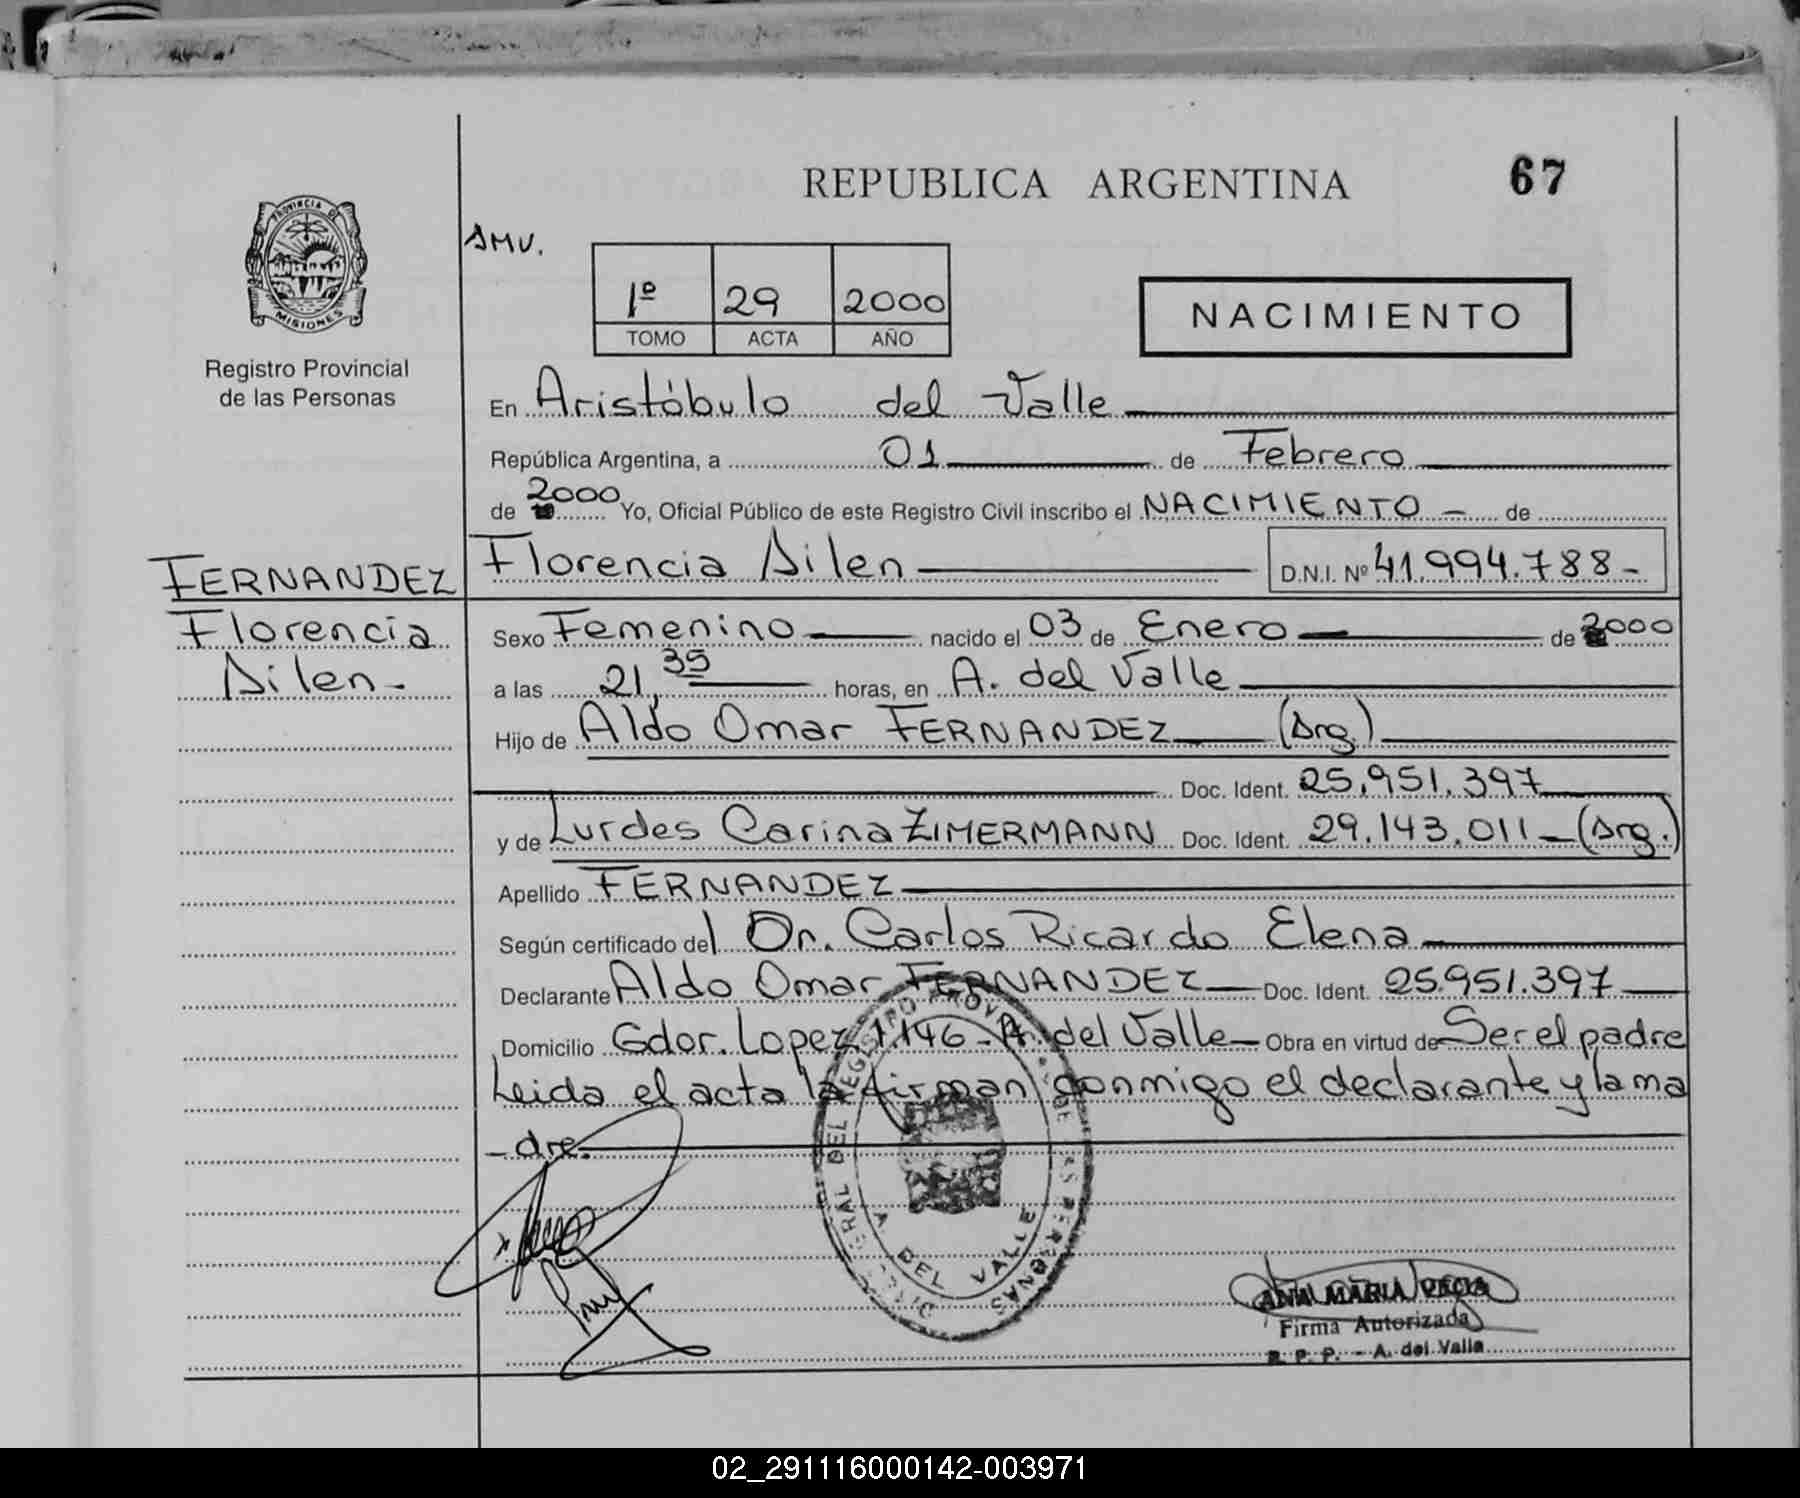 REPUBLICA ARGENTINA
67
PROVINCIA DE
MISIONES
Registro Provincial
de las Personas
AMV.
1º 29 2000
TOMO ACTA AÑO
NACIMIENTO
En Aristóbulo del Valle
República Argentina, a 01 de Febrero
de 2000 Yo, Oficial Público de este Registro Civil inscribo el NACIMIENTO - de
FERNANDEZ
Florencia
Ailen-
Florencia Ailen D.N.I. Nº 41.994.788-
Sexo Femenino nacido el 03 de Enero de 2000
a las 21,35 horas, en A. del Valle
Hijo de Aldo Omar FERNANDEZ (Arg.)
Doc. Ident. 25.951.397
y de Lurdes Carina ZIMERMANN Doc. Ident. 29.143.011-(Arg.)
Apellido FERNANDEZ
Según certificado del Dr. Carlos Ricardo Elena
Declarante Aldo Omar FERNANDEZ Doc. Ident. 25951.397
Domicilio Gdor. Lopez 1.146-A. del Valle Obra en virtud de Ser el padre
Leida el acta la firman conmigo el declarante y la ma
-dre.
A. DEL VALLE
ANA MARIA
Firma Autorizada
R. P. P. - A. del Valle
02_291116000142-003971